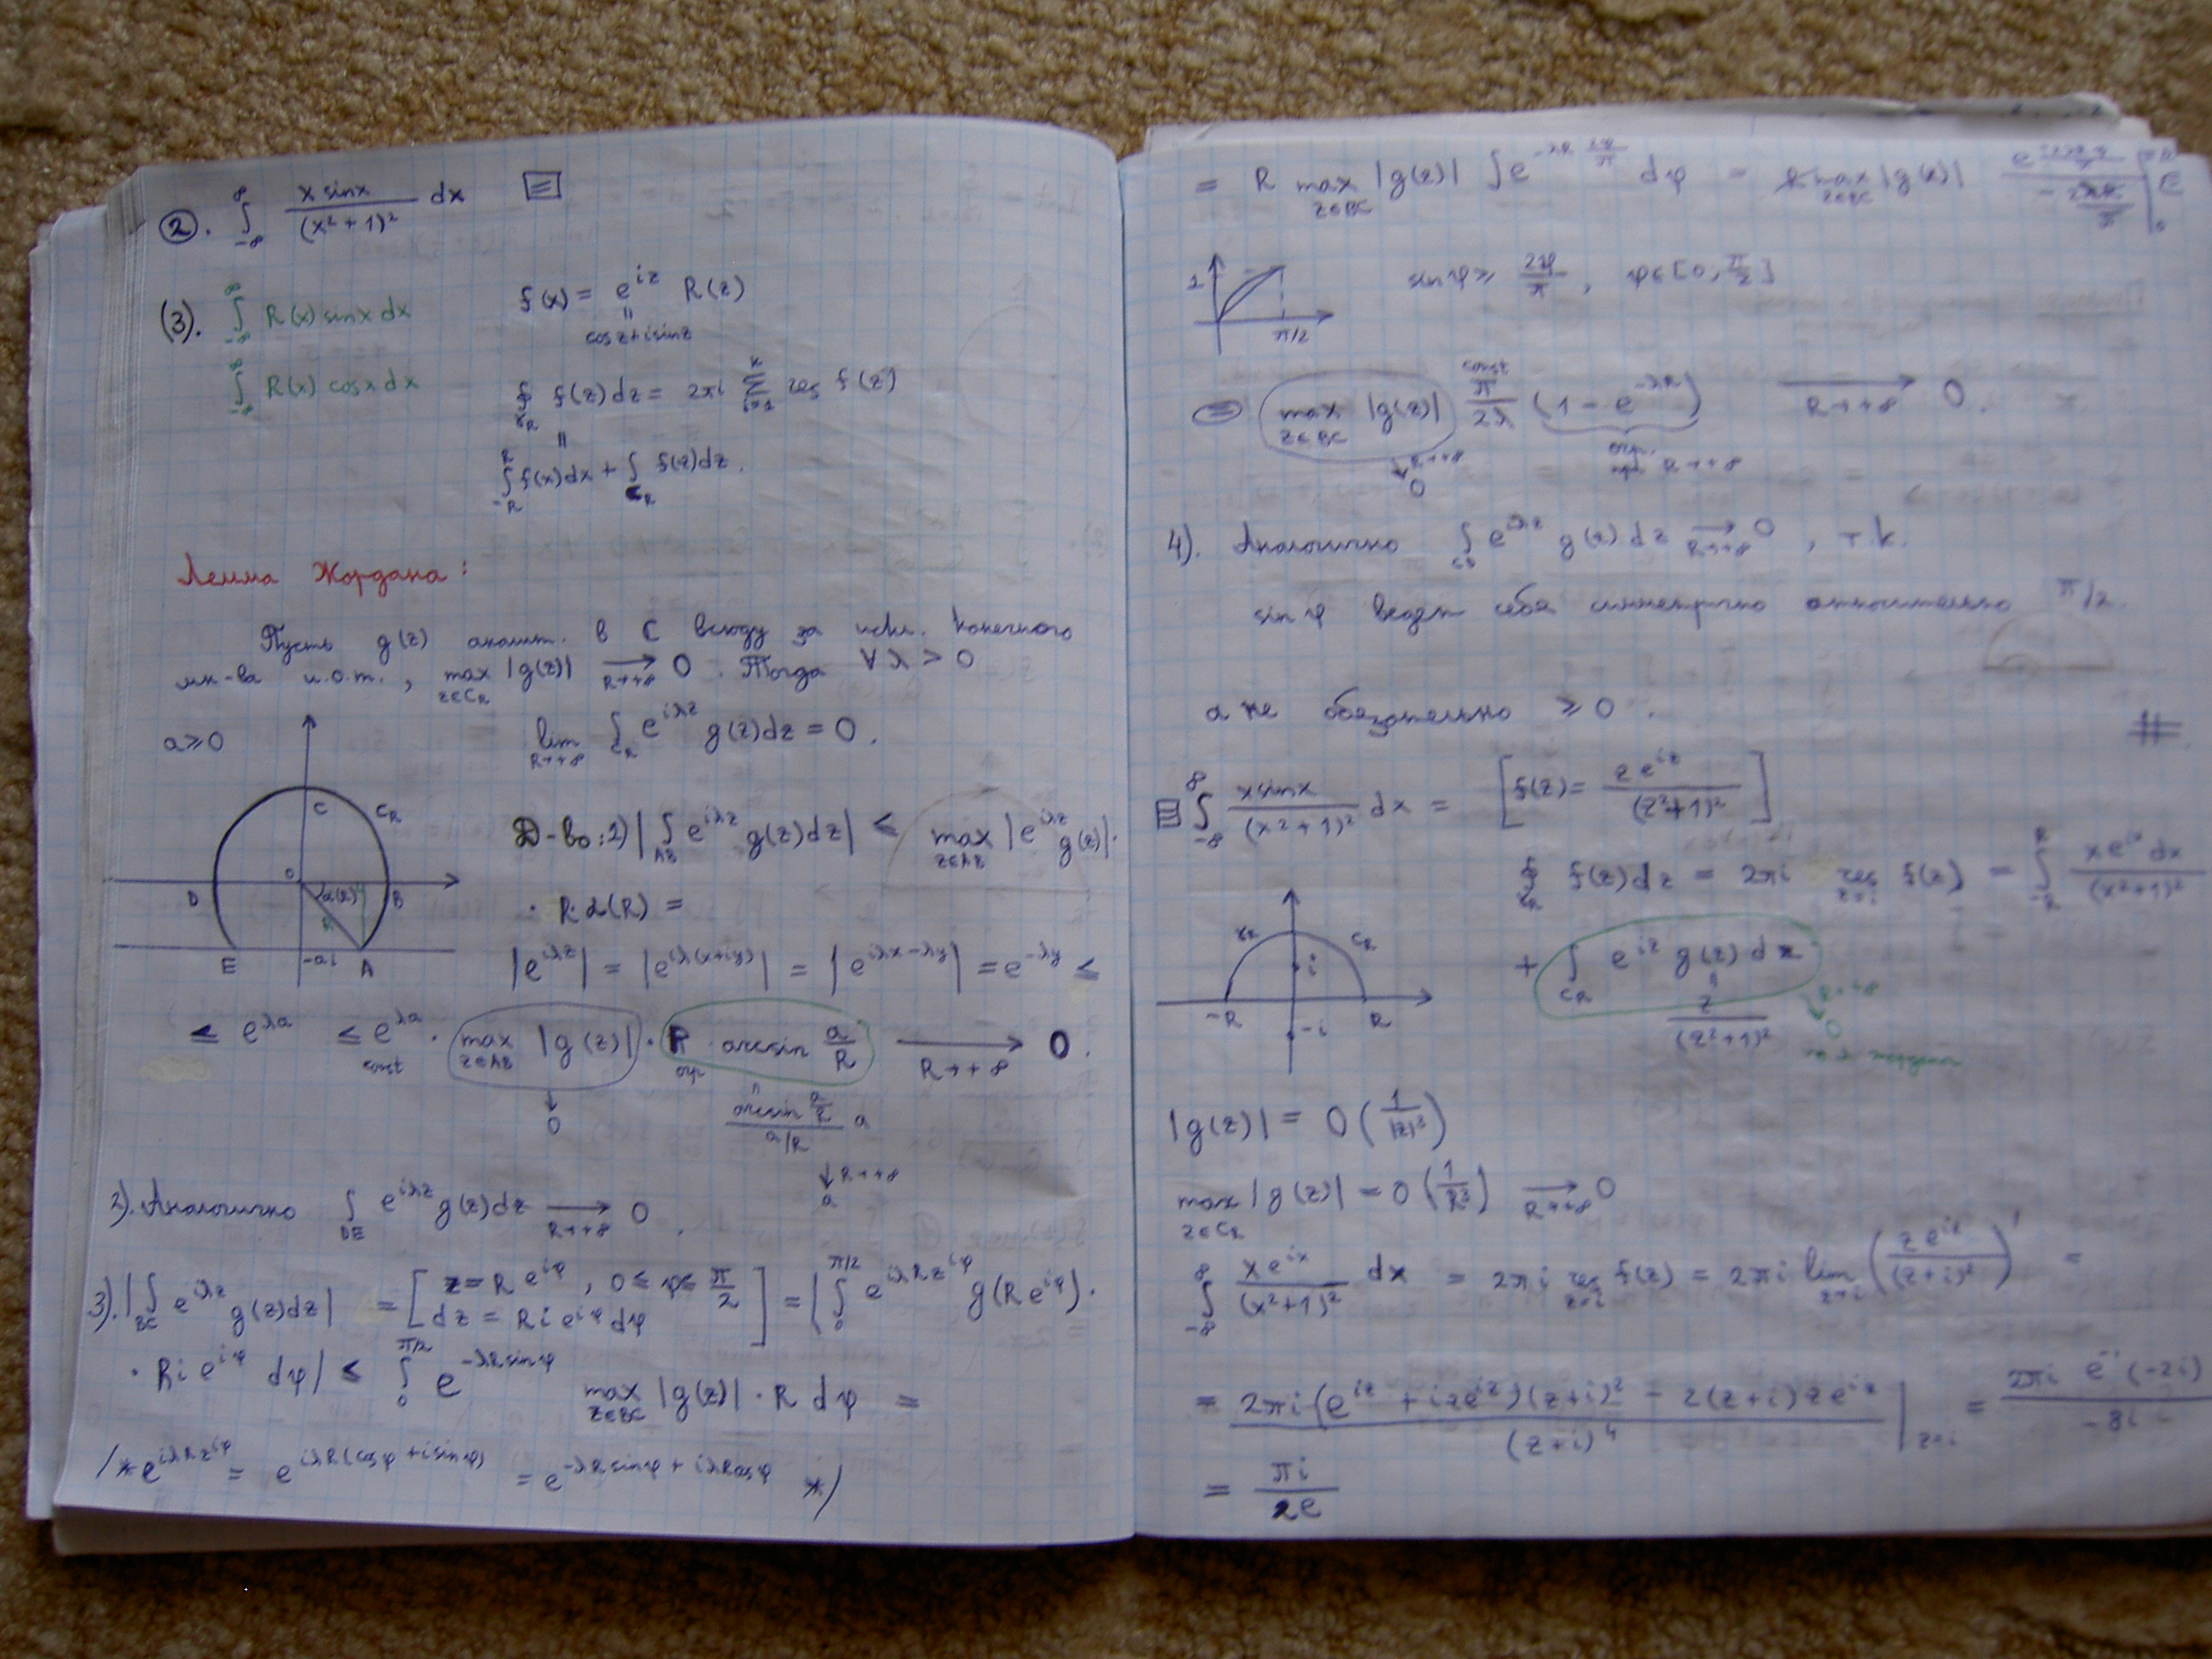 ②. ∫_{-∞}^{∞} \frac{x sinx}{(x²+1)²} dx ⊟
(3). ∫_{-∞}^{∞} R(x) sinx dx f(x) = e^{iz} R(z)
cosz+isinz
∫_{-∞}^{∞} R(x) cosx dx ∮_{γ_R} f(z)dz = 2πi Σ_{i=1}^{k} res f(z)
∫_{-R}^{R} f(x)dx + ∫_{C_R} f(z)dz.
Лемма Жордана:
Пусть g(z) аналит. в C всюду за искл. конечного
мн-ва и.о.т., max_{z∈C_R} |g(z)| →_{R→+∞} 0. Тогда ∀λ > 0
a≥0 lim_{R→+∞} ∫_{C_R} e^{iλz} g(z)dz = 0.
C C_R
D O α(R) B
E -ai A
Д-во: 1) |∫_{AB} e^{iλz} g(z)dz| ≤ max_{z∈AB} |e^{iλz} g(z)|·
· R·α(R) =
|e^{iλz}| = |e^{iλ(x+iy)}| = |e^{iλx-λy}| = e^{-λy} ≤
≤ e^{λa} ≤ e^{λa} · max_{z∈AB} |g(z)| · R · arcsin \frac{a}{R} →_{R→+∞} 0.
const ↓ 0 огр \frac{arcsin \frac{a}{R}}{a/R} a
↓ R→+∞
a
2). Аналогично ∫_{DE} e^{iλz} g(z)dz →_{R→+∞} 0.
3). |∫_{BC} e^{iλz} g(z)dz| = [z = R e^{iφ}, 0 ≤ φ ≤ \frac{π}{2}
dz = R i e^{iφ} dφ] = |∫_{0}^{π/2} e^{iλRz^{iφ}} g(Re^{iφ})·
· Ri e^{iφ} dφ| ≤ ∫_{0}^{π/2} e^{-λR sinφ} max_{z∈BC} |g(z)| · R dφ =
/* e^{iλRz^{iφ}} = e^{iλR(cosφ+isinφ)} = e^{-λR sinφ + iλR cosφ} */
= R max_{z∈BC} |g(z)| ∫ e^{-λR \frac{2φ}{π}} dφ = R max_{z∈BC} |g(z)|
1 π/2 sinφ ≥ \frac{2φ}{π}, φ∈[0, \frac{π}{2}]
⊜ max_{z∈BC} |g(z)| \frac{π}{2λ} (1 - e^{-λR}) →_{R→+∞} 0.
const
↓ R→+∞ 0 огр. при R→+∞
4). Аналогично ∫_{CD} e^{iλz} g(z)dz →_{R→+∞} 0, т.к.
sinφ ведет себя симметрично относительно π/2.
a не обязательно ≥ 0. #
⊟ ∫_{-∞}^{∞} \frac{x sinx}{(x²+1)²} dx = [f(z) = \frac{z e^{iz}}{(z²+1)²}]
∮_{γ_R} f(z)dz = 2πi res_{z=i} f(z) = ∫_{-R}^{R} \frac{x e^{ix} dx}{(x²+1)²}
γ_R C_R i -R R -i
+ ∫_{C_R} e^{iz} g(z) dz
\frac{z}{(z²+1)²} R→+∞ 0
по л. Жордана
|g(z)| = O(\frac{1}{|z|³})
max_{z∈C_R} |g(z)| = O(\frac{1}{R³}) →_{R→+∞} 0
∫_{-∞}^{∞} \frac{x e^{ix}}{(x²+1)²} dx = 2πi res_{z=i} f(z) = 2πi lim_{z→i} (\frac{z e^{iz}}{(z+i)²})' =
= \frac{2πi (e^{iz} + ize^{iz})(z+i)² - 2(z+i)ze^{iz}}{(z+i)⁴} |_{z=i} =
= \frac{πi}{2e}